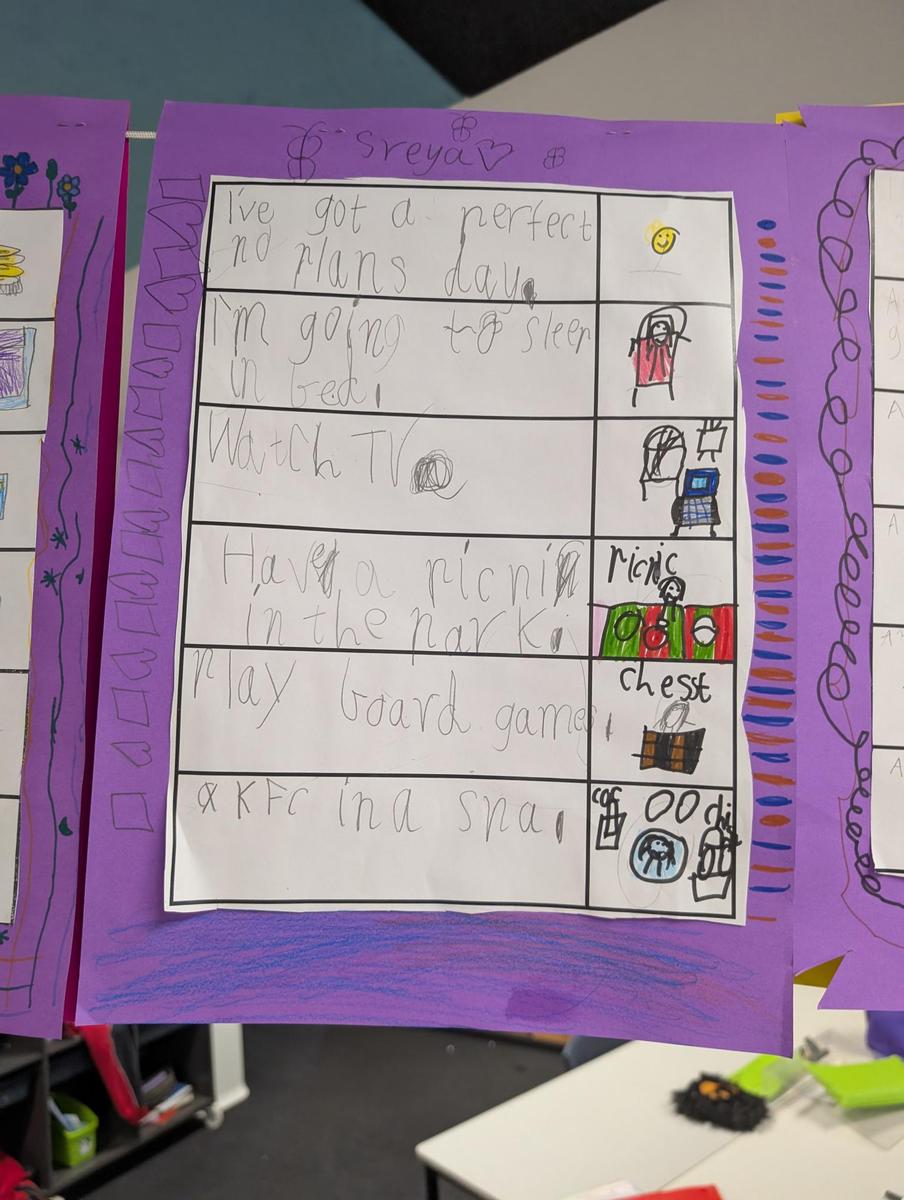 Sreya
I've got a perfect
no plans day.
I'm going to sleep
in bed.
Watch TV
Have a picnik
in the park.
picnic
Play board games.
chesst
KFC in a spa.